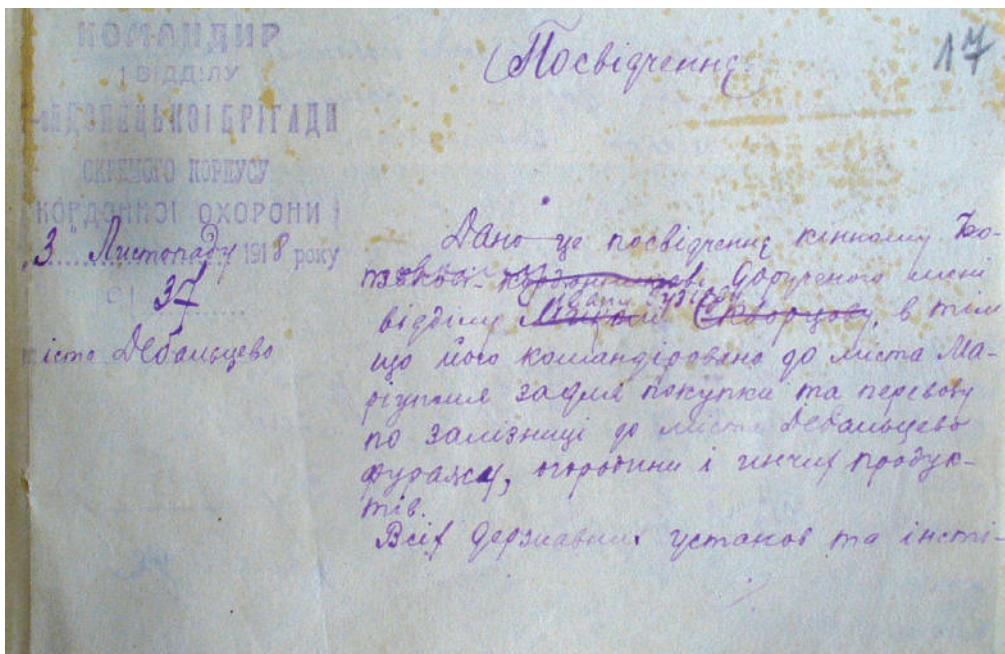 КОМАНДИР
ВІДДІЛУ
БРІГАДИ
ОКРЕМОГО КОРПУСУ
КОРДОННОІ ОХОРОНИ
"3" Листопаду 1918 року
37
міста Дебальцево
Посвідченнє
17
Дано це посвідченнє кінному
дорученого мені
відділу Івану в тім
що його командіровано до міста Ма-
ріуполя задля покупки та перевозу
по залізниці до міста Дебальцево
фуражу, огородини і инчих продук-
тів.
Всіх державних установ та інсти-